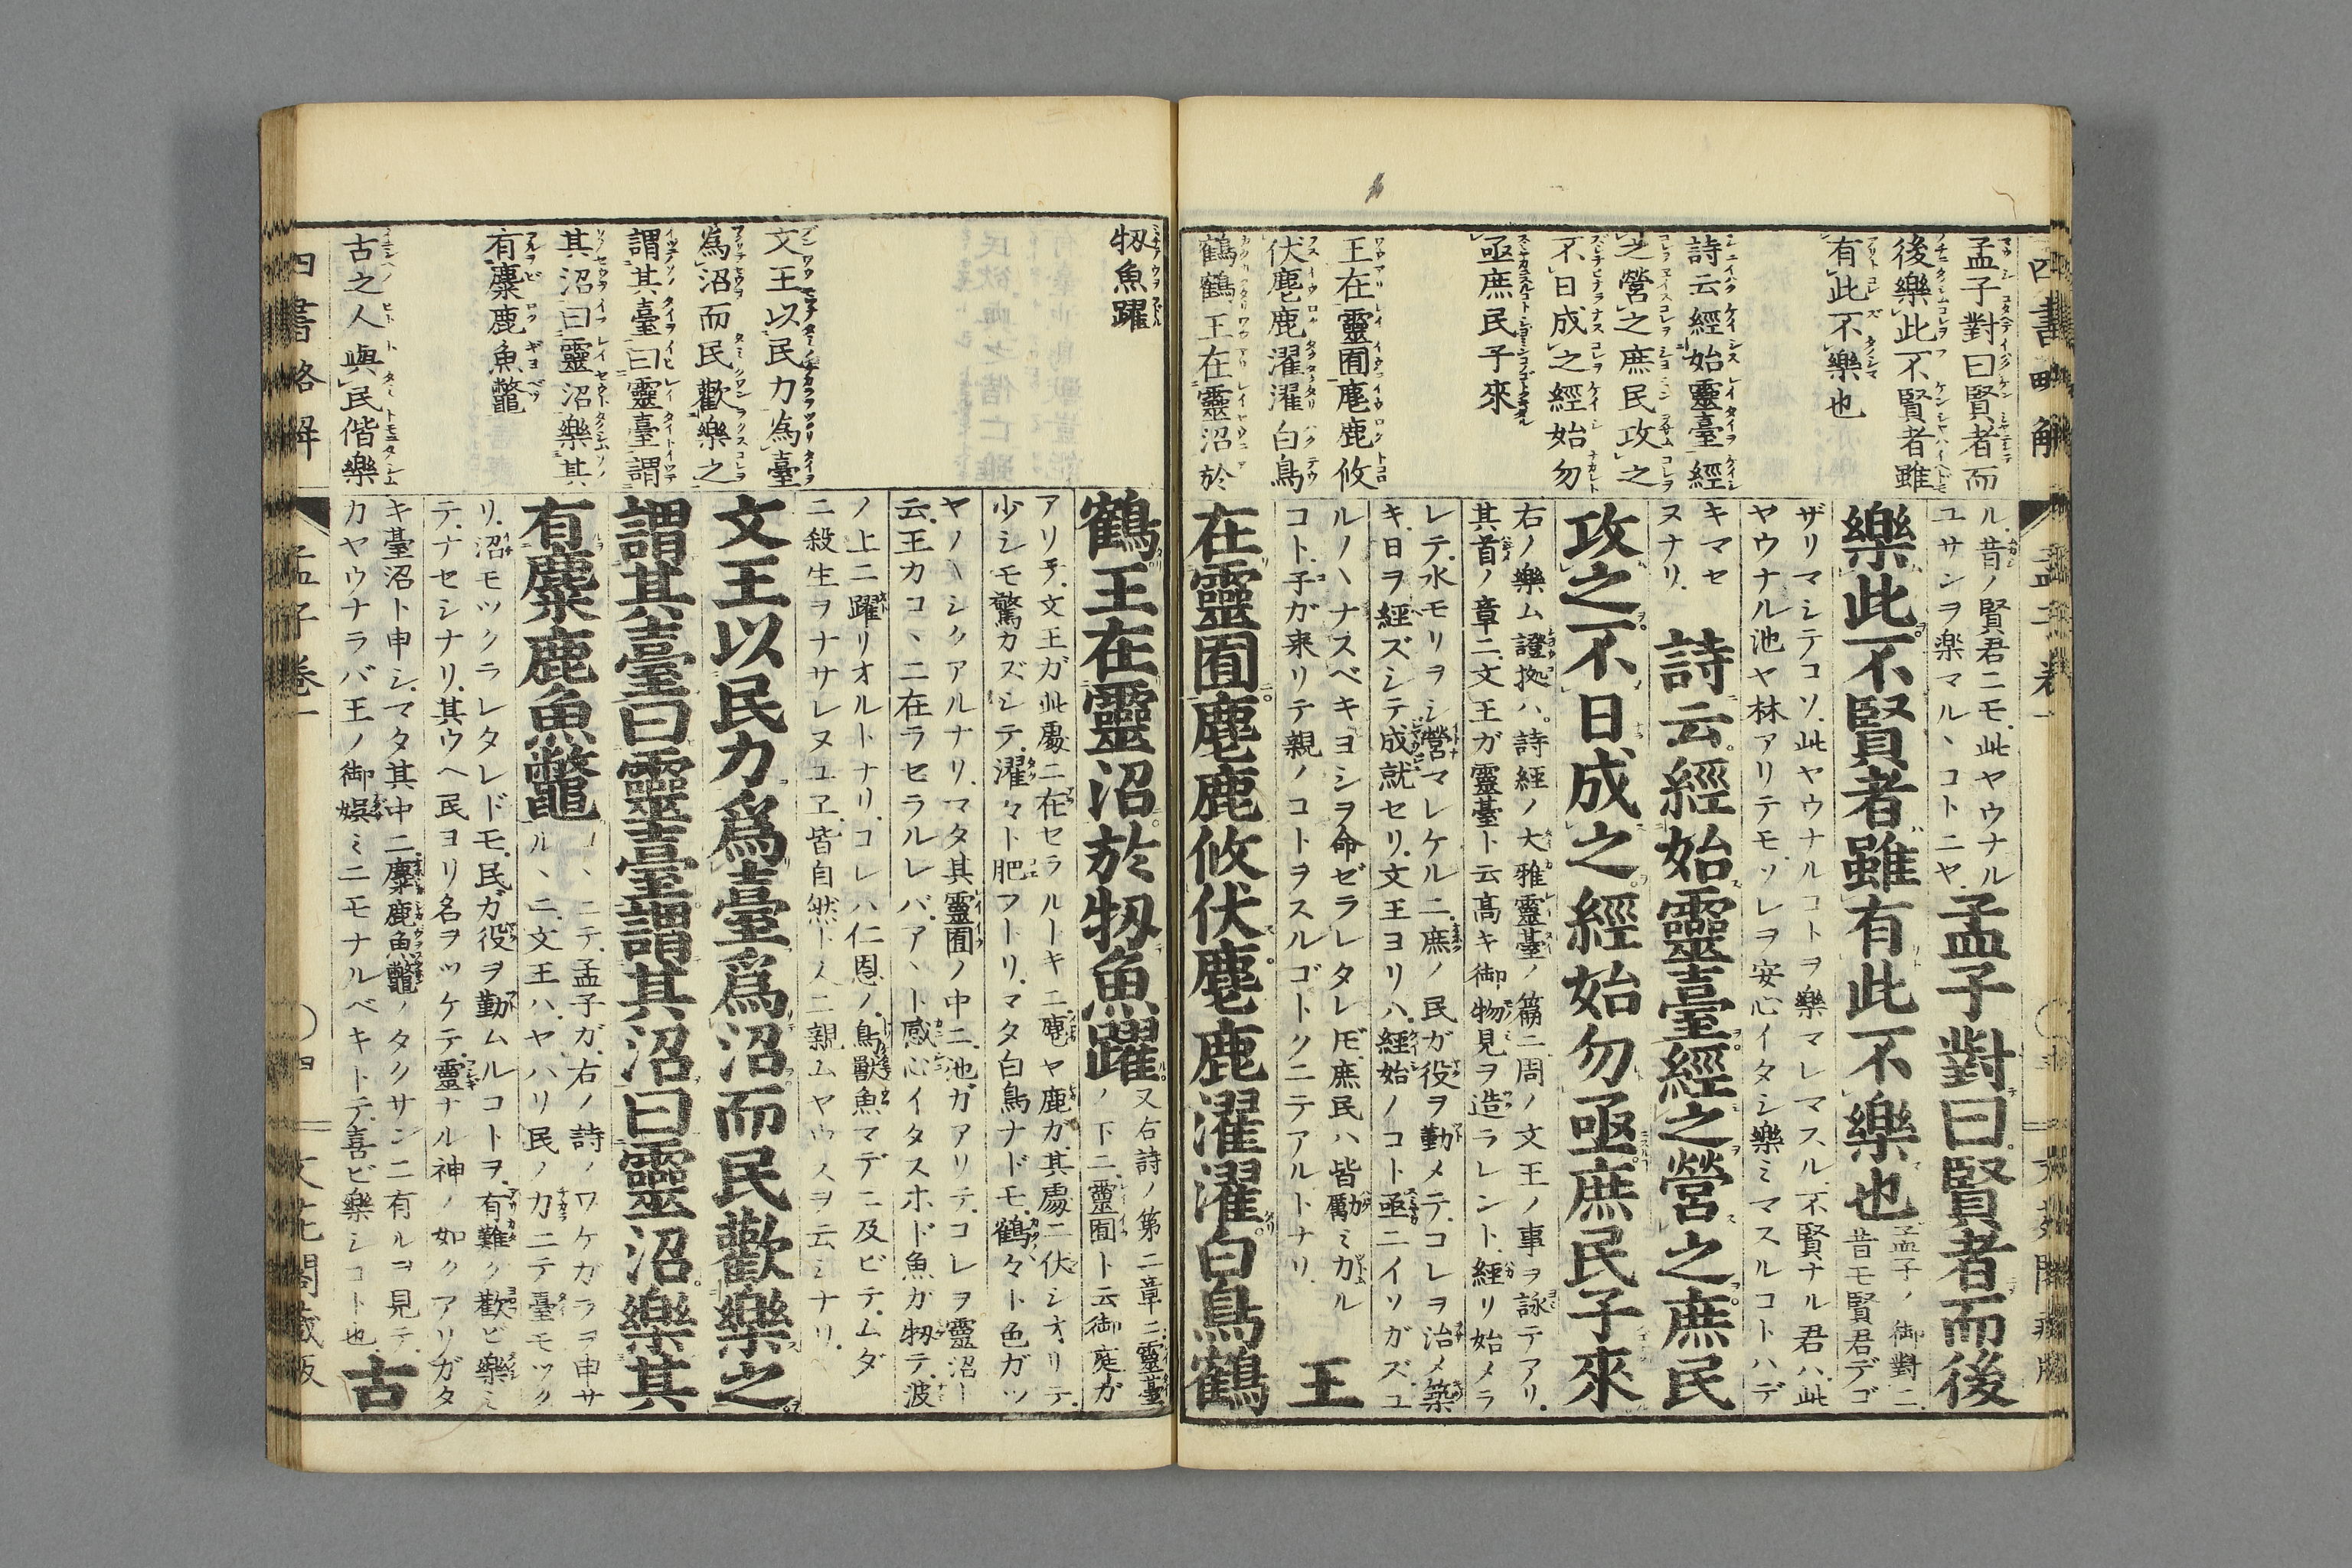 四書略解
孟子卷一
孟子對曰賢者而
後樂此不賢者雖
有此不樂也
詩云經始靈臺經
之營之庶民攻之
不日成之經始勿
亟庶民子來
王在靈囿麀鹿攸
伏麀鹿濯濯白鳥
鶴鶴王在靈沼於
ル昔ノ賢君ニモ此ヤウナル
ユサンヲ楽マルヽコトニヤ
孟子對曰賢者而後
樂此不賢者雖有此不樂也
孟子ノ御對ニ
昔モ賢君デゴ
ザリマシテコソ此ヤウナルコトヲ樂マレマスル不賢ナル君ハ此
ヤウナル池ヤ林アリテモソレヲ安心イタシ樂ミマスルコトハデ
キマセ
ヌナリ
詩云經始靈臺經之營之庶民
攻之不日成之經始勿亟庶民子來
右ノ樂ム證拠ハ詩経ノ大雅靈臺ノ篇ニ周ノ文王ノ事ヲ詠テアリ
其首ノ章ニ文王ガ靈臺ト云高キ御物見ヲ造ラレント經リ始メラ
レテ水モリヲシ營マレケルニ庶ノ民ガ役ヲ勤メテコレヲ治メ築
キ日ヲ經ズシテ成就セリ文王ヨリハ經始ノコト亟ニイソガズユ
ル〳〵ナスベキヨシヲ命ゼラレタレ𪜈庶民ハ皆厲ミカル
コト子ガ来リテ親ノコトヲスルゴトクニテアルトナリ
王
在靈囿麀鹿攸伏麀鹿濯濯白鳥鶴
牣魚躍
文王以民力為臺
為沼而民歡樂之
謂其臺曰靈臺謂
其沼曰靈沼樂其
有麋鹿魚鼈
古之人與民偕樂
鶴王在靈沼於牣魚躍
又右詩ノ第二章ニ靈臺
ノ下ニ靈囿ト云御庭ガ
アリテ文王ガ此處ニ在セラルトキニ麀ヤ鹿ガ其處ニ伏シオリテ
少シモ驚カズシテ濯々ト肥フトリマタ白鳥ナドモ鶴々ト色ガツ
ヤ〳〵シクアルナリマタ其靈囿ノ中ニ池ガアリテコレヲ靈沼ト
云王カコヽニ在ラセラルレバアヽト感心イタスホド魚ガ牣テ波
ノ上ニ躍リオルトナリコレハ仁恩ノ鳥獸魚マデニ及ビテムダ
ニ殺生ヲナサレヌユヱ皆自然ト人ニ親ムヤウスヲ云シナリ
文王以民力爲臺爲沼而民歡樂之
謂其臺曰靈臺謂其沼曰靈沼樂其
有麋鹿魚鼈
コヽニテ孟子ガ右ノ詩ノワケガラヲ申サ
ルヽニ文王ハヤハリ民ノ力ニテ臺モツク
リ沼モツクラレタレドモ民ガ役ヲ勤ムルコトヲ有難ク歡ビ樂ミ
テナセシナリ其ウヘ民ヨリ名ヲツケテ靈ナル神ノ如クアリガタ
キ臺沼ト申シマタ其中ニ麋鹿魚鼈ノタクサンニ有ルヲ見テ
カヤウナラバ王ノ御娯ミニモナルベキトテ喜ビ樂シコト也
古
四書略解
孟子卷一
〇四
文花閣藏版